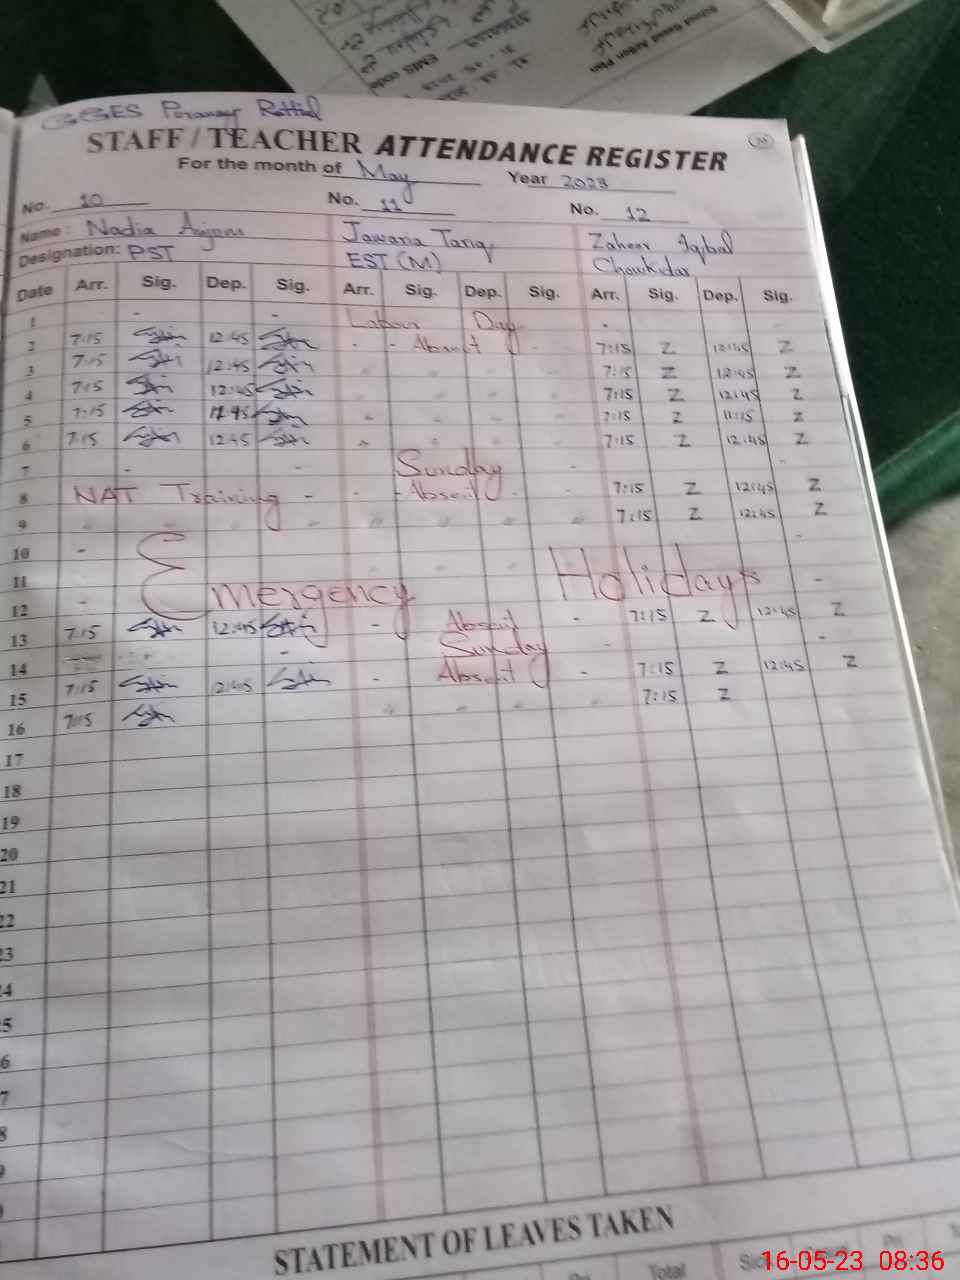 GGES
STAFF / TEACHER ATTENDANCE REGISTER
For the month of May Year 2023
No. 10 No. 11 No. 12
Name: Nadia Anjam Jawaria Tariq Zaheer Iqbal
Designation: PST EST (M) Chowkidar
Date Arr. Sig. Dep. Sig. Arr. Sig. Dep. Sig. Arr. Sig. Dep. Sig.
1 - - Labour Day -
2 7:15 12:45 - - Absent - - 7:15 Z 12:45 Z
3 7:15 12:45 " " " " 7:15 Z 12:45 Z
4 7:15 12:45 " " " 7:15 Z 12:45 Z
5 7:15 12:45 " " " " 7:15 Z 11:15 Z
6 7:15 12:45 " " " " 7:15 Z 12:45 Z
7 - - Sunday - -
8 NAT Training - - - Absent - - 7:15 Z 12:45 Z
9 " " " " " " " " 7:15 Z 12:45 Z
10 - -
11 Emergency Holidays -
12 -
13 7:15 12:45 - Absent - 7:15 Z 12:45 Z
14 - Sunday - -
15 7:15 12:45 - Absent - 7:15 Z 12:45 Z
16 7:15 " " " " 7:15 Z
17
18
19
20
21
22
23
24
5
6
7
8
9
STATEMENT OF LEAVES TAKEN
Total Sick
16-05-23 08:36